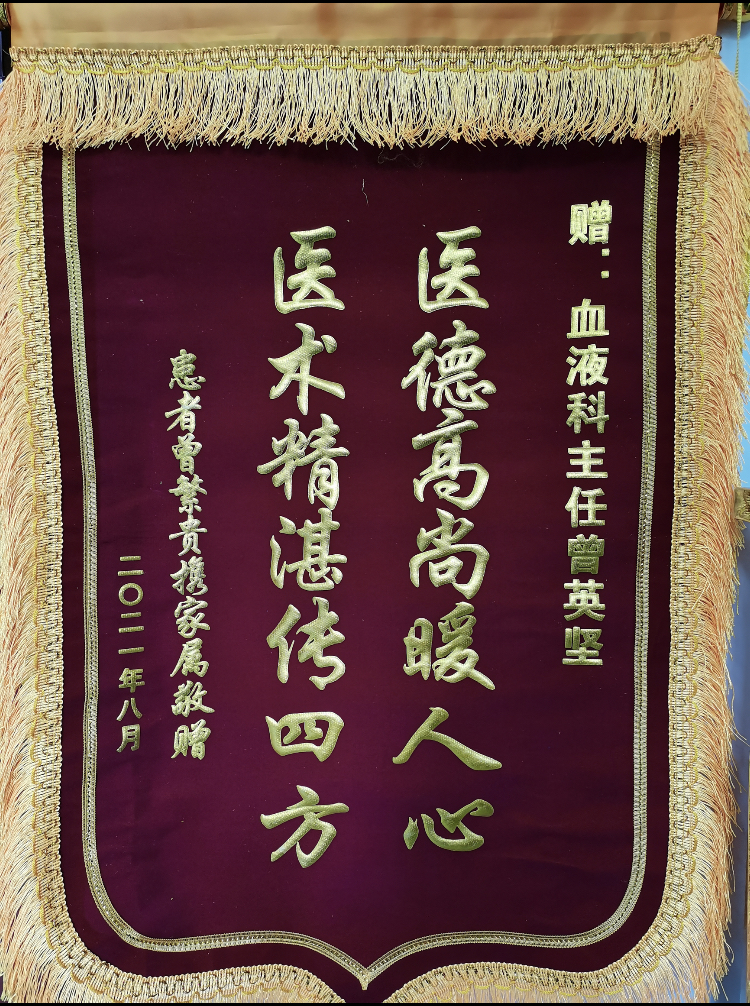 赠：血液科主任曾英坚
医德高尚暖人心
医术精湛传四方
患者曾繁贵携家属敬赠
二〇二一年八月